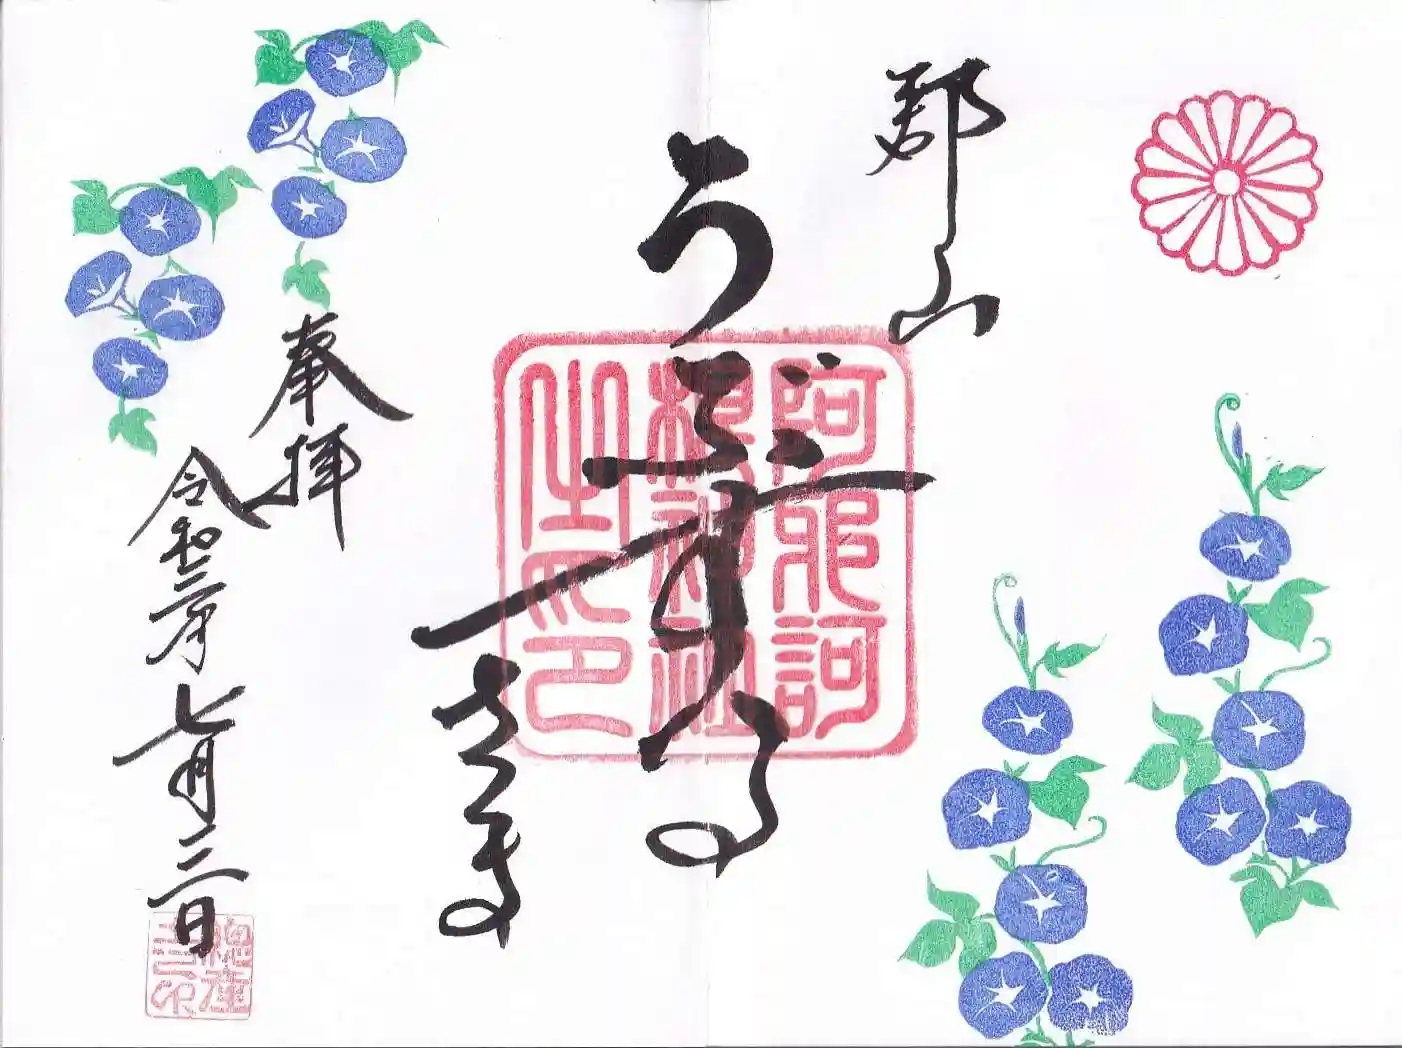 郡山
うぶすな
さま
奉拝
令和三年七月二日
阿邪訶
根神社
之印